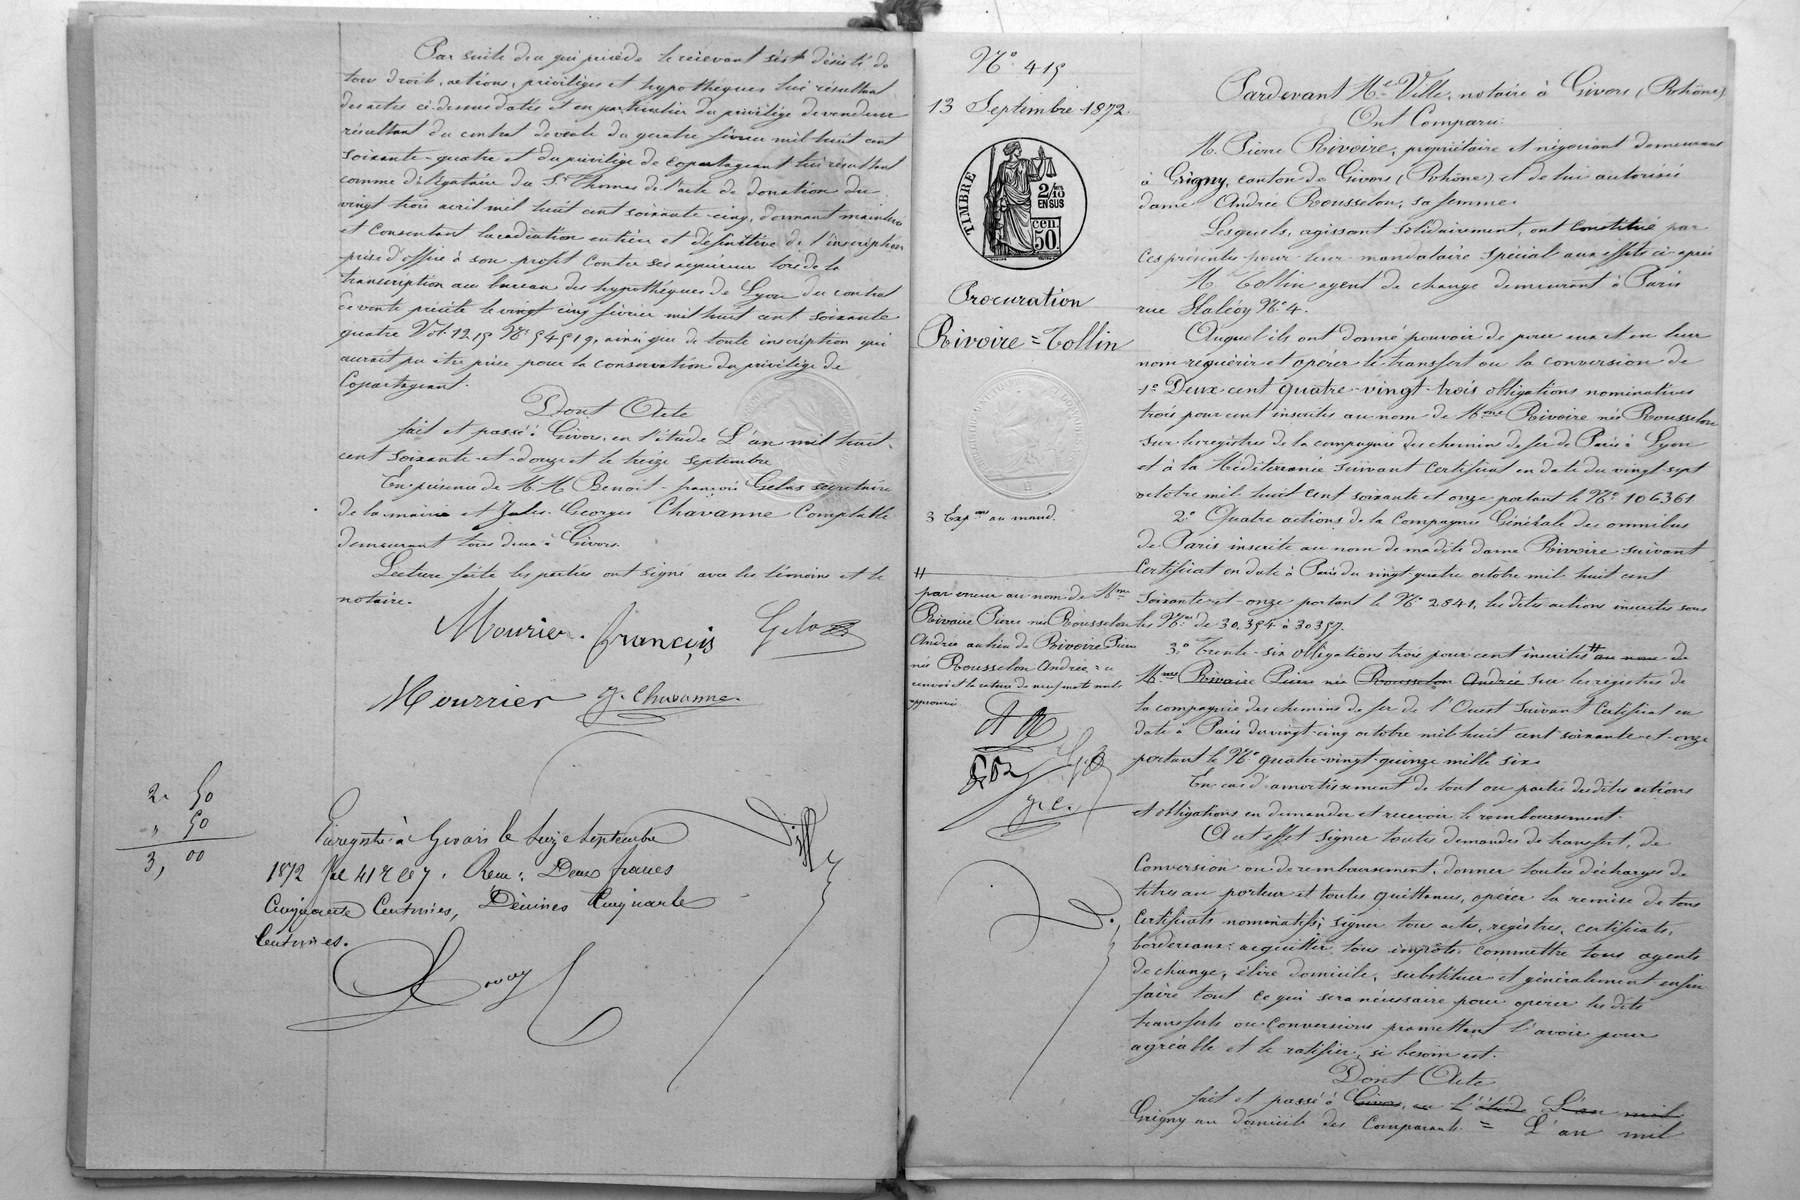 Par suite de ce qui précède le réclévant s'est désisté de
tous droits, actions, privilèges et hypothèques lui résultant
des actes ci-dessus datés et en particulier du privilège de vendeur
résultant du contrat de vente du quatre février mil huit cent
soixante-quatre et du privilège de copartageant lui résultant
comme délégataire du Sr Thomas de l'acte de donation du
vingt trois avril mil huit cent soixante-cinq, donnant mainlevée
et consentant la radiation entière et définitive de l'inscription
prise d'office à son profit contre ses acquéreurs lors de la
transcription au bureau des hypothèques de Lyon du contrat
de vente précité le vingt cinq février mil huit cent soixante
quatre Vol. 1215 No 54519, ainsi que de toute inscription qui
aurait pu être prise pour la conservation du privilège de
Copartageant.
Dont Acte
fait et passé à Givors, en l'étude L'an mil huit-
cent soixante-et-douze et le treize septembre
En présence de M.M. Benoit-françois Gelas secrétaire
de la mairie et Jules-Georges Chavanne Comptable
demeurant tous deux à Givors.
Lecture faite les parties ont signé avec les témoins et le
notaire.
Mourier françois Gelas
Mourrier J. Chavanne
2 " 50
" 50
3, 00
Enregistré à Givors le seize septembre
1872 fol 41 R C 7. Reçu: Deux francs
Cinquante Centimes, Décimes Cinquante
Centimes.
No 415
13 Septembre 1872
TIMBRE
2/10 EN SUS
50 cen.
Procuration
Rivoire = Tollin
3 Exp.ons au mand.
par erreur au nom de Mme
Rivoire Pierre née Rousselon
Andrée au lieu de Rivoire Pierre
née Rousselon Andrée = ce
renvoi et la rature de neuf mots nuls
approuvés
A R
J. C.
Pardevant Me Ville, notaire à Givors (Rhône)
Ont Comparu:
M. Pierre Rivoire, propriétaire et négociant demeurant
à Grigny, canton de Givors (Rhône) et de lui autorisée
dame Andrée Rousselon, sa femme
Lesquels, agissant solidairement, ont constitué par
ces présentes pour leur mandataire spécial aux effets ci-après
M. Tollin agent de change demeurant à Paris
rue Halévy No 4.
Auquel ils ont donné pouvoir de pour eux et en leur
nom requérir et opérer le transfert ou la conversion de
1o Deux cent quatre-vingt-trois obligations nominatives
trois pour cent inscrites au nom de Mme Rivoire née Rousselon
sur les registres de la compagnie des chemins de fer de Paris à Lyon
et à la Méditerranée suivant certificat en date du vingt sept
octobre mil huit cent soixante et onze portant le No 106361
2o Quatre actions de la Compagnie Générale des omnibus
de Paris inscrite au nom de madite dame Rivoire suivant
Certificat en date à Paris du vingt quatre octobre mil huit cent
soixante-et-onze portant le No 2841, les dites actions inscrites sous
les Nos de 30,354 à 30357.
3o Trente-six obligations trois pour cent inscrites au nom de
Mme Rivoire Pierre née Rousselon Andrée sur les registres de
la compagnie des chemins de fer de l'Ouest suivant certificat en
date à Paris du vingt-cinq octobre mil huit cent soixante-et-onze
portant le No quatre-vingt-quinze mille six
En cas d'amortissement de tout ou partie desdites actions
et obligations en demander et recevoir le remboursement.
A cet effet signer toutes demandes de transfert, de
Conversion ou de remboursement, donner toutes décharges de
titres au porteur et toutes quittances, opérer la remise de tous
Certificats nominatifs; signer tous actes, registres, certificats,
bordereaux; acquitter tous impôts, commettre tous agents
de change, élire domicile, substituer et généralement enfin
faire tout ce qui sera nécessaire pour opérer les dits
transferts ou conversions promettant l'avoir pour
agréable et le ratifier, si besoin est.
Dont Acte
fait et passé à Givors, en l'étude L'an mil
Grigny au domicile des Comparants = L'an mil